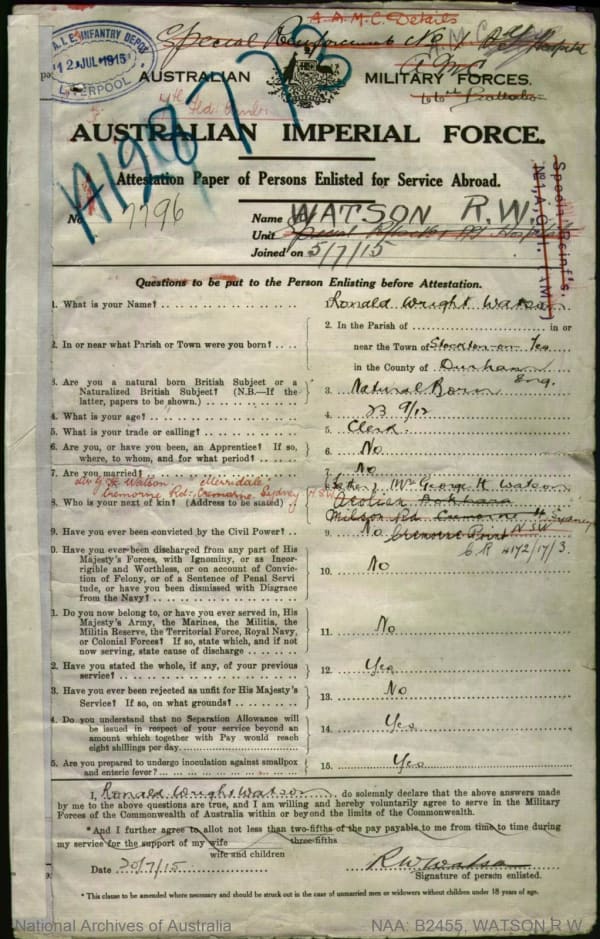 A.A.M.C. Details
A.I.F. INFANTRY DEPOT
12 JUL 1915
LIVERPOOL
Special Reinforcements No 1
AUSTRALIAN MILITARY FORCES.
A198773
AUSTRALIAN IMPERIAL FORCE.
Attestation Paper of Persons Enlisted for Service Abroad.
No. 7796 Name WATSON R.W.
Unit
Joined on 5/7/15
Questions to be put to the Person Enlisting before Attestation.
1. What is your Name? 1. Ronald Wright Watson
2. In the Parish of in or
2. In or near what Parish or Town were you born? near the Town of Stockton-on Tees
in the County of Durham Eng.
3. Are you a natural born British Subject or a
Naturalized British Subject? (N.B.—If the 3. Natural Born
latter, papers to be shown.)
4. What is your age? 4. 23 9/12
5. What is your trade or calling? 5. Clerk.
6. Are you, or have you been, an Apprentice? If so, 6. No
where, to whom, and for what period?
7. Are you married? 7. No
Cremorne Rd. Cremorne. Sydney N.S.W
8. Who is your next of kin? (Address to be stated) Father, Mr George H Watson
Milson Rd. Cremorne Sydney
9. Have you ever been convicted by the Civil Power? 9. No Cremorne Point N.S.W
C.R 4172/17/3.
0. Have you ever been discharged from any part of His
Majesty's Forces, with Ignominy, or as Incor-
rigible and Worthless, or on account of Convic-
tion of Felony, or of a Sentence of Penal Servi 10. No
tude, or have you been dismissed with Disgrace
from the Navy?
1. Do you now belong to, or have you ever served in, His
Majesty's Army, the Marines, the Militia, the
Militia Reserve, the Territorial Force, Royal Navy, 11. No
or Colonial Forces? If so, state which, and if not
now serving, state cause of discharge
2. Have you stated the whole, if any, of your previous 12. Yes
service?
3. Have you ever been rejected as unfit for His Majesty's 13. No
Service? If so, on what grounds?
4. Do you understand that no Separation Allowance will
be issued in respect of your service beyond an 14. Yes
amount which together with Pay would reach
eight shillings per day.
5. Are you prepared to undergo inoculation against smallpox 15. Yes
and enteric fever?
I, Ronald Wright Watson do solemnly declare that the above answers made
by me to the above questions are true, and I am willing and hereby voluntarily agree to serve in the Military
Forces of the Commonwealth of Australia within or beyond the limits of the Commonwealth.
*And I further agree to allot not less than two-fifths of the pay payable to me from time to time during
three-fifths
my service for the support of my wife
wife and children
Date 20/7/15 R W Watson
Signature of person enlisted.
*This clause to be amended where necessary and should be struck out in the case of unmarried men or widowers without children under 18 years of age.
National Archives of Australia NAA: B2455, WATSON R W